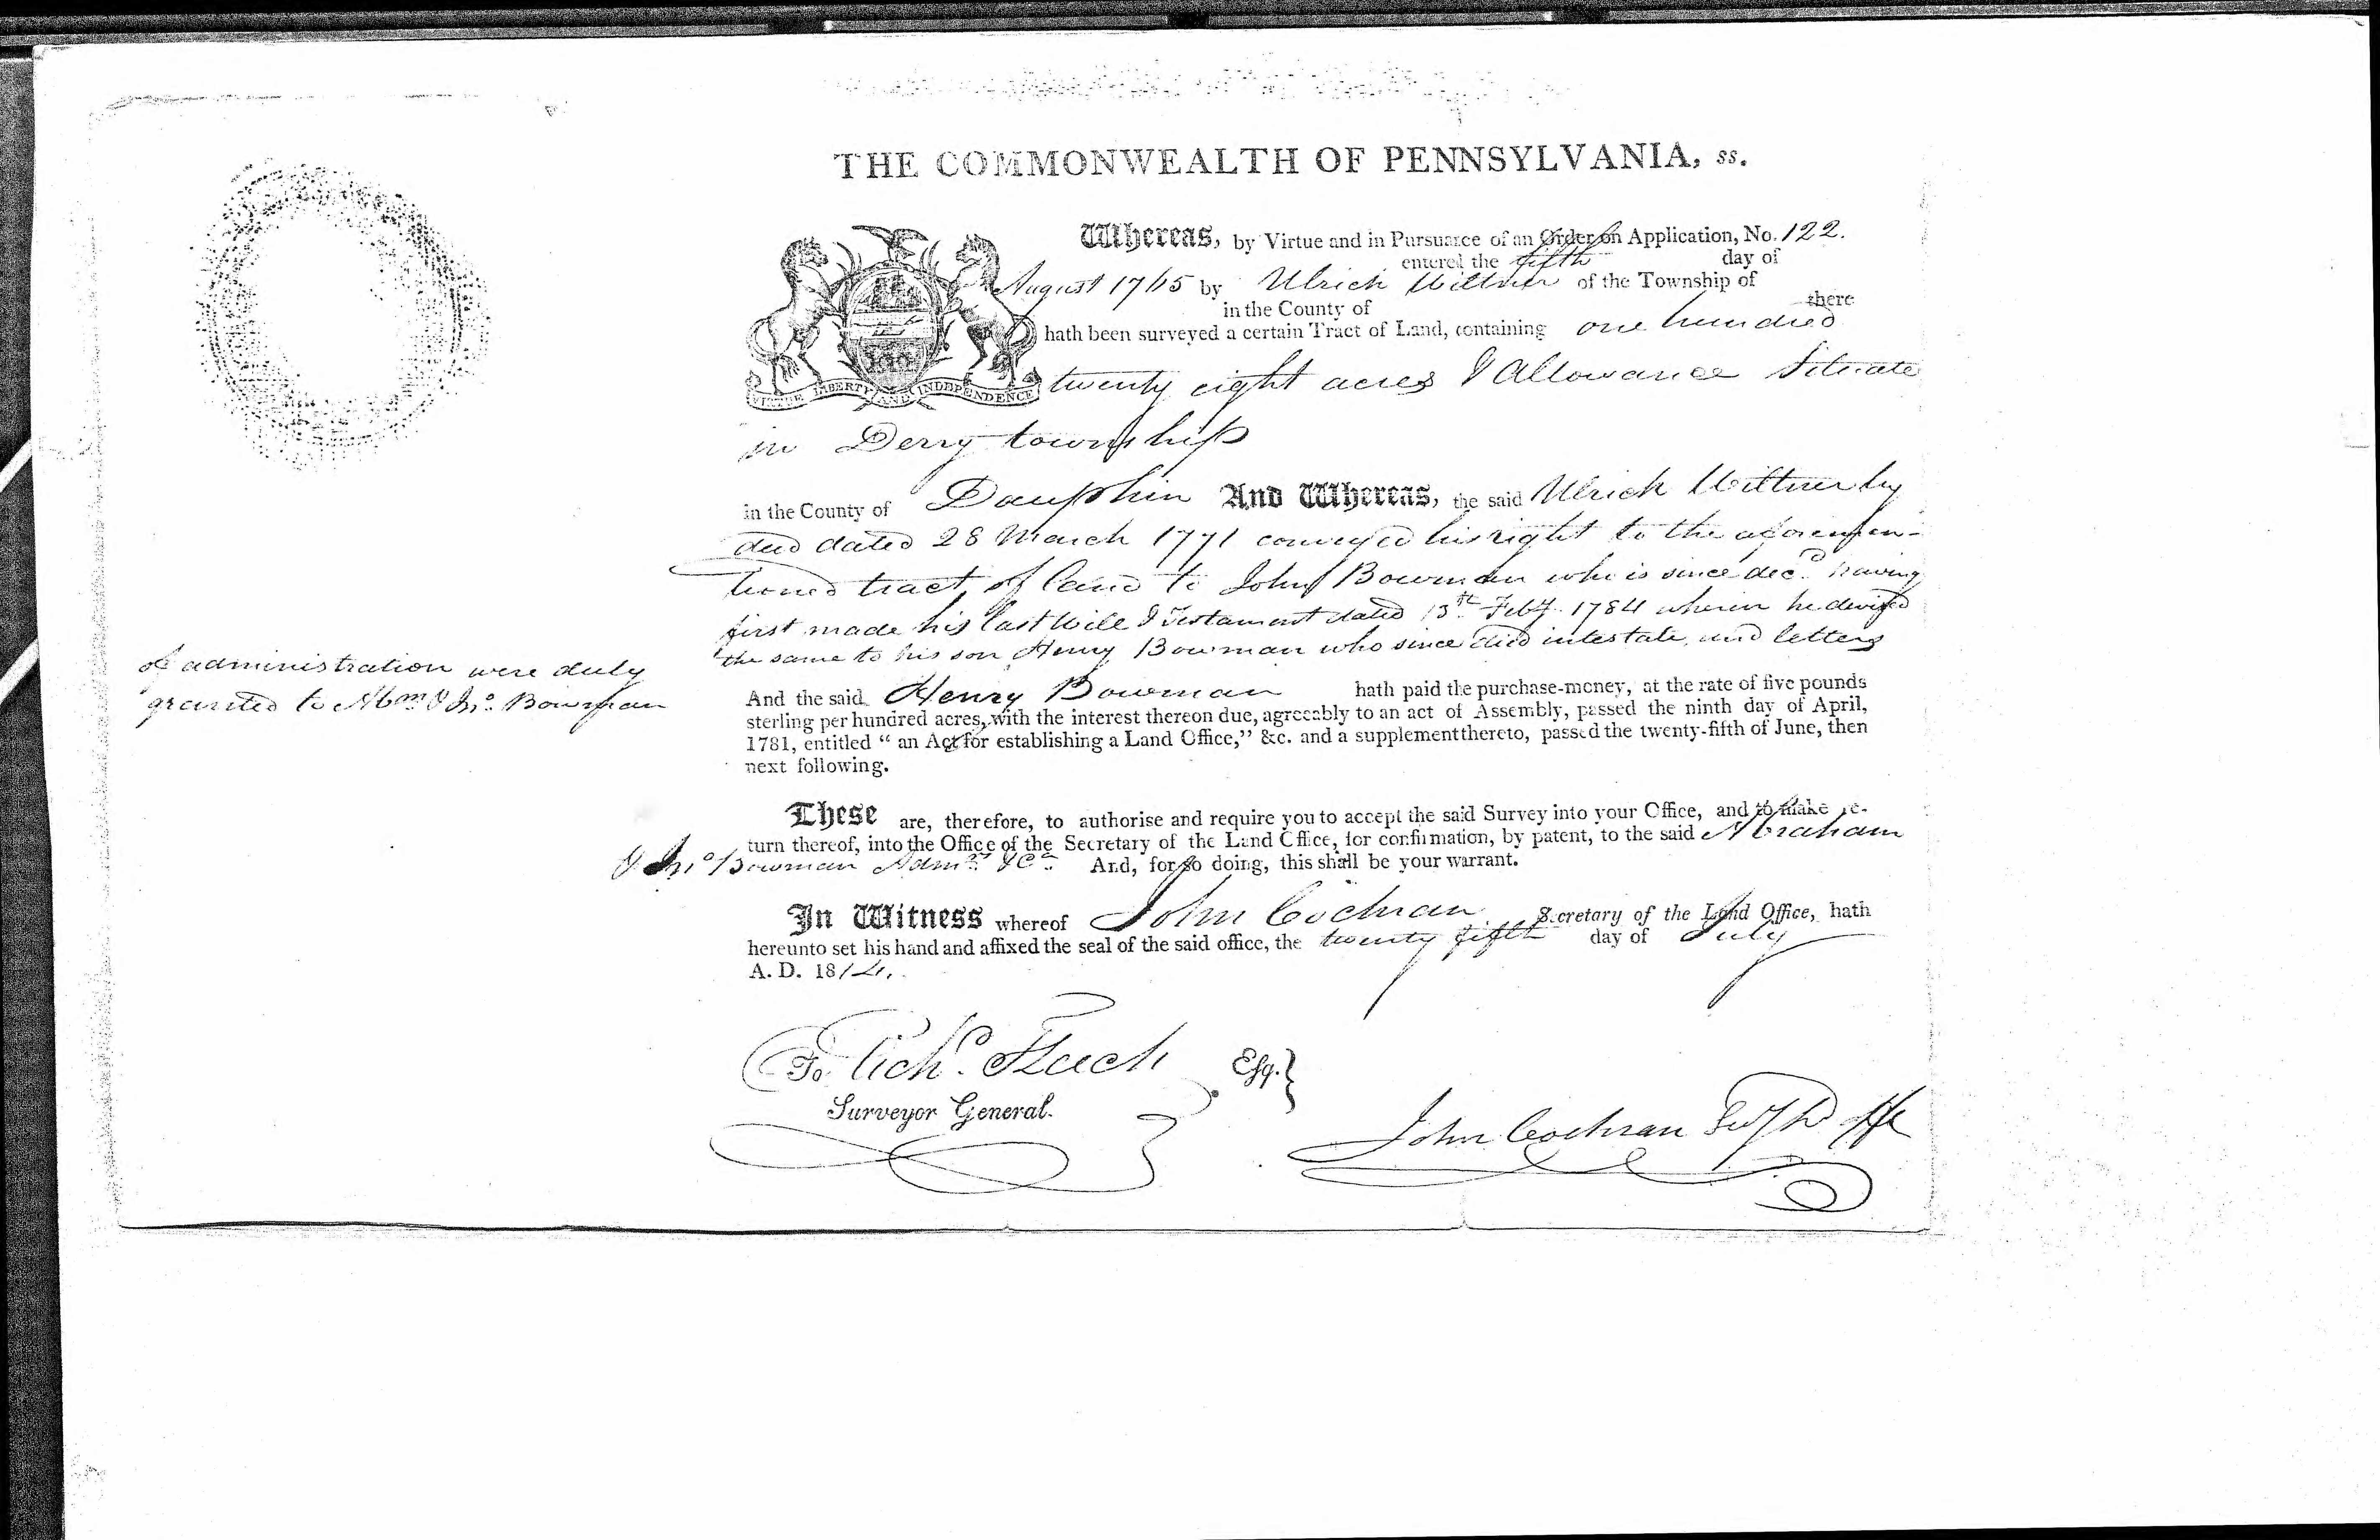 THE COMMONWEALTH OF PENNSYLVANIA, ss.
Whereas, by Virtue and in Pursuance of an Order on Application, No. 122.
entered the fifth day of
August 1765 by Ulrich Wiltner of the Township of
in the County of there
hath been surveyed a certain Tract of Land, containing one hundred
twenty eight acres & Allowance Situate
VIRTUE LIBERTY AND INDEPENDENCE
in Derry township
in the County of Dauphin And Whereas, the said Ulrich Wiltner by
deed dated 28 March 1771 conveyed his right to the aforemen-
tioned tract of land to John Bowman who is since decd. having
first made his last Will & Testament dated 13th Feby. 1784 wherein he devised
the same to his son Henry Bowman who since died intestate, and letters
of administration were duly
granted to Abm. & Jno. Bowman
And the said Henry Bowman hath paid the purchase-money, at the rate of five pounds
sterling per hundred acres, with the interest thereon due, agreeably to an act of Assembly, passed the ninth day of April,
1781, entitled “ an Act for establishing a Land Office,” &c. and a supplement thereto, passed the twenty-fifth of June, then
next following.
These are, therefore, to authorise and require you to accept the said Survey into your Office, and to make re-
turn thereof, into the Office of the Secretary of the Land Office, for confirmation, by patent, to the said Abraham
& Jno. Bowman Admrs. &ca. And, for so doing, this shall be your warrant.
In Witness whereof John Cochran Secretary of the Land Office, hath
hereunto set his hand and affixed the seal of the said office, the twenty fifth day of July
A. D. 1814.
To Esq.
Surveyor General.
John Cochran